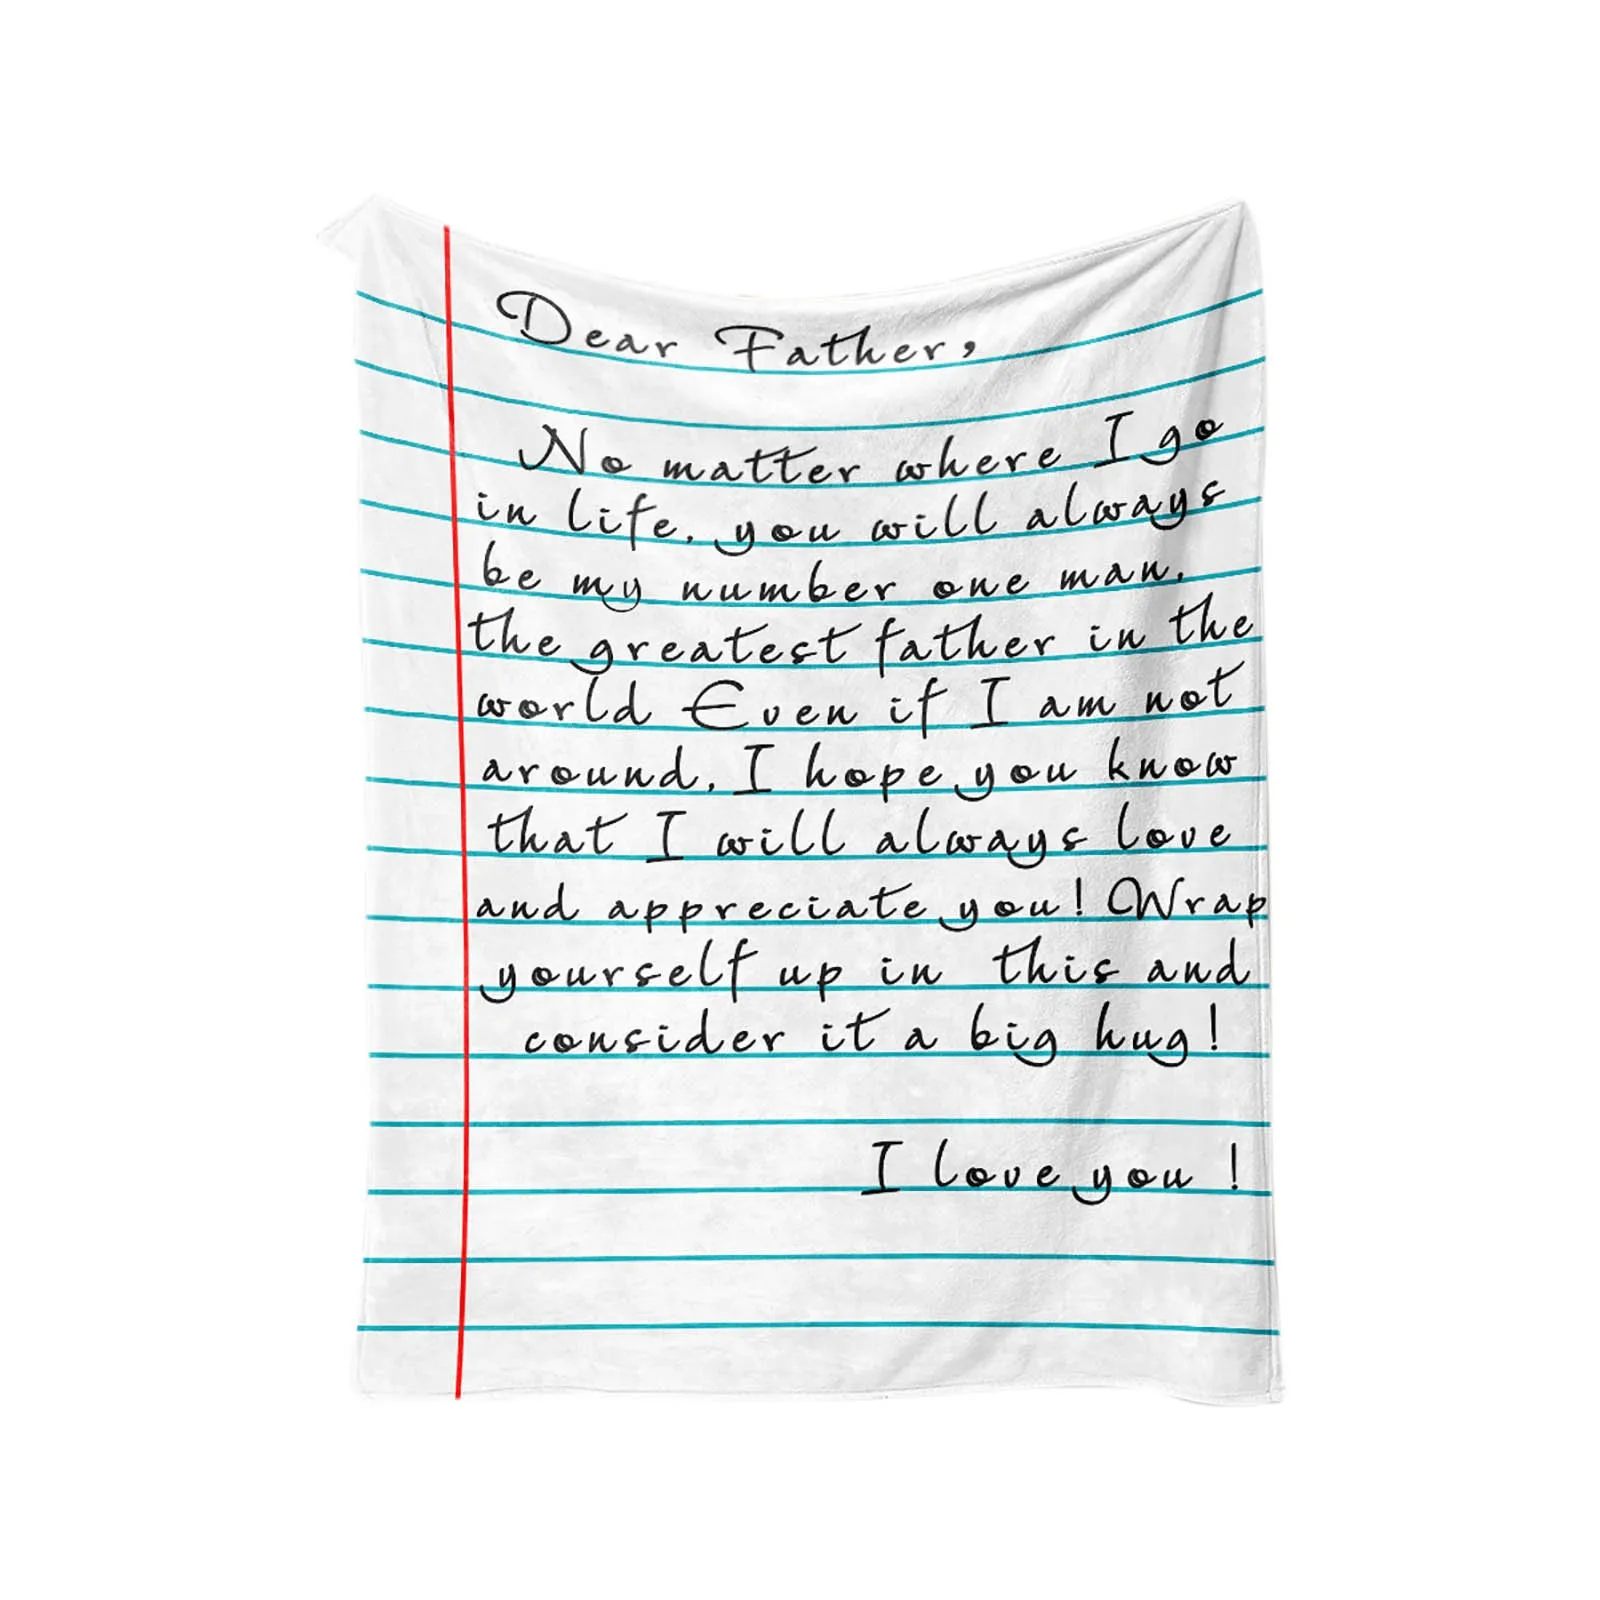 Dear Father,
No matter where I go
in life, you will always
be my number one man,
the greatest father in the
world Even if I am not
around, I hope you know
that I will always love
and appreciate you! Wrap
yourself up in this and
consider it a big hug!
I love you !